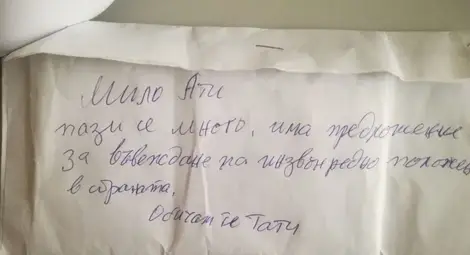 Мило Ати
пази се много, има предложение
за въвеждане на инзвънредно положе
в страната.
Обичам те Тати